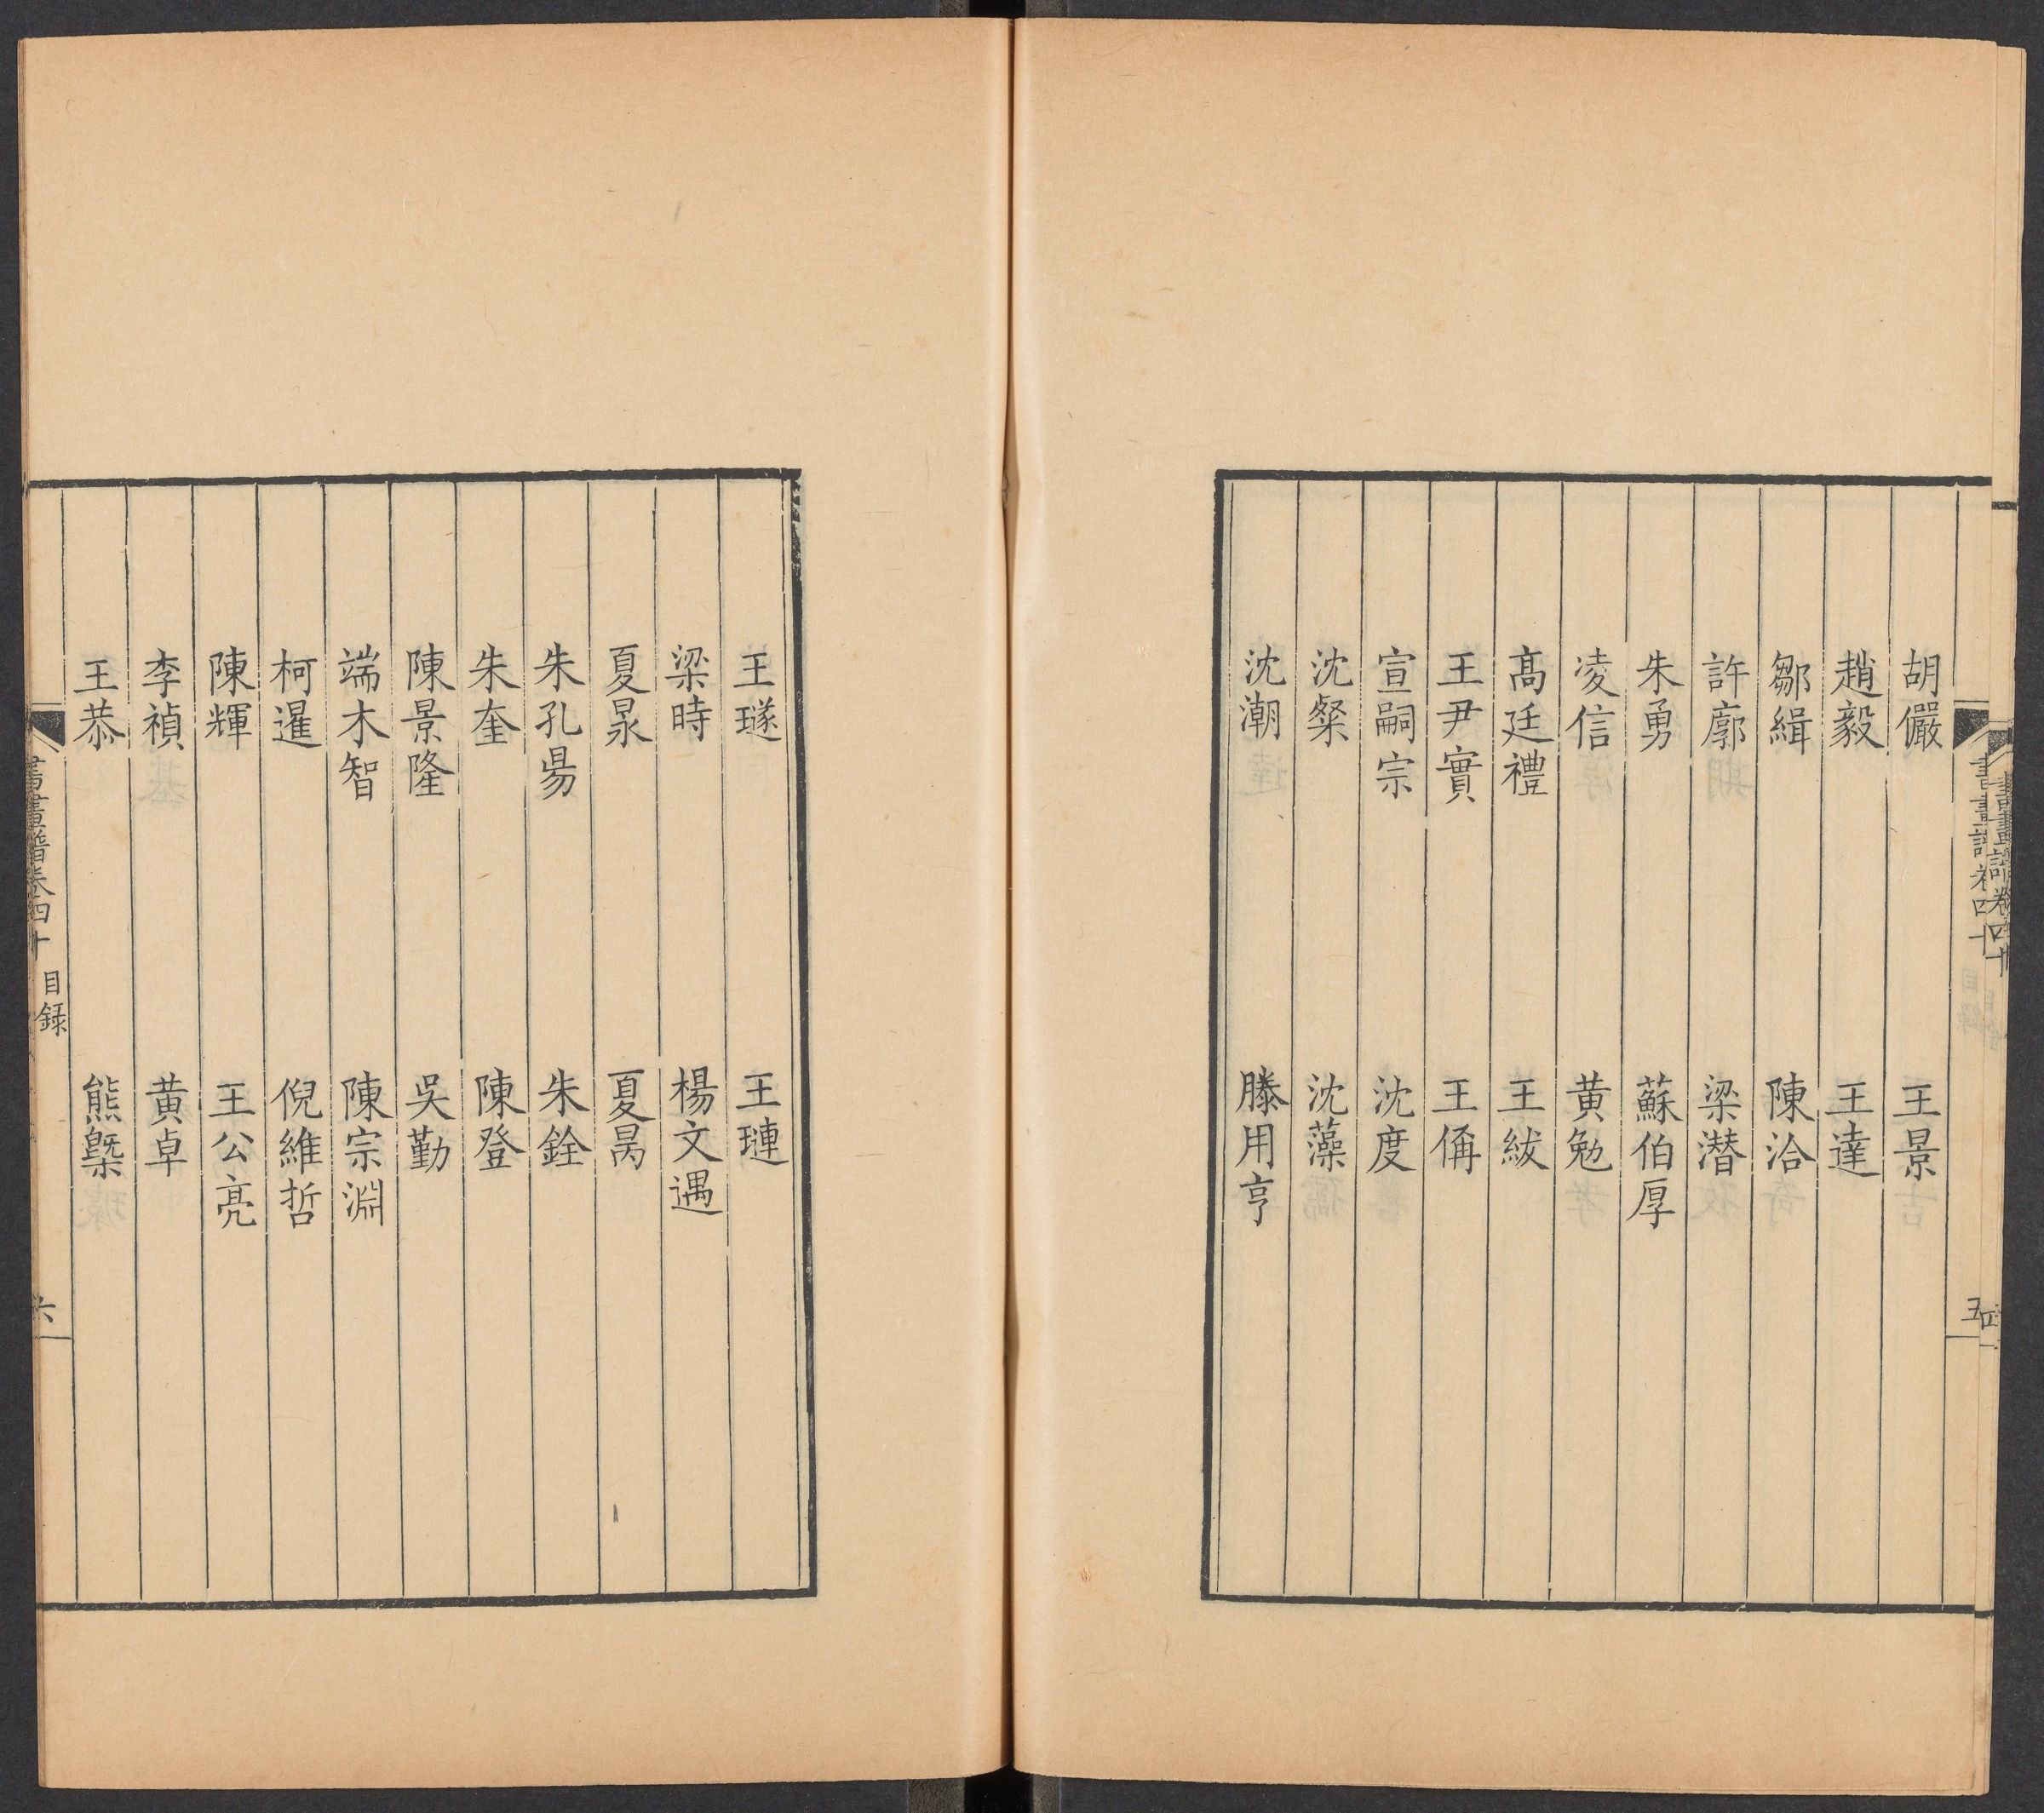 胡儼 王景
趙毅 王達
鄒緝 陳洽
許廓 梁潜
朱勇 蘇伯厚
凌信 黃勉
高廷禮 王紱
王尹實 王偁
宣嗣宗 沈度
沈粲 沈藻
沈潮 滕用亨
王璲 王璉
梁時 楊文遇
夏㫤 夏昺
朱孔昜 朱銓
朱奎 陳登
陳景隆 吳勤
端木智 陳宗淵
柯暹 倪維哲
陳輝 王公亮
李禎 黃卓
王恭 熊槩
書畫譜卷四十 目録 六